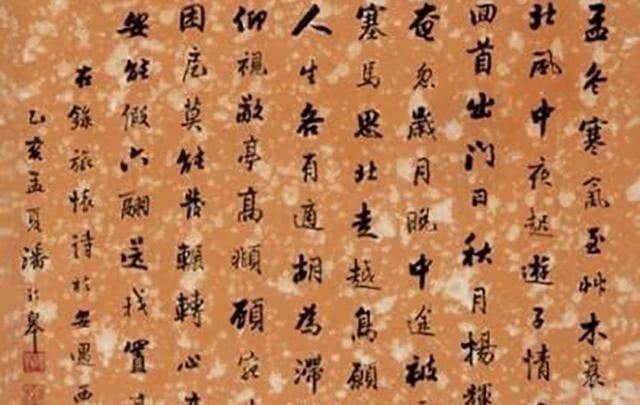 孟冬寒氣至艸木衰
北風中夜起遊子情
回首出門日秋月楊輝
奄忽歲月晚中途被
塞馬思北走越鳥願
人生各有適胡為滯
仰視敞亭高頫顧宛
困厄莫能發輾轉心
安能假六翮送我置
右錄旅懷詩於安西
乙亥孟夏潘齡皋